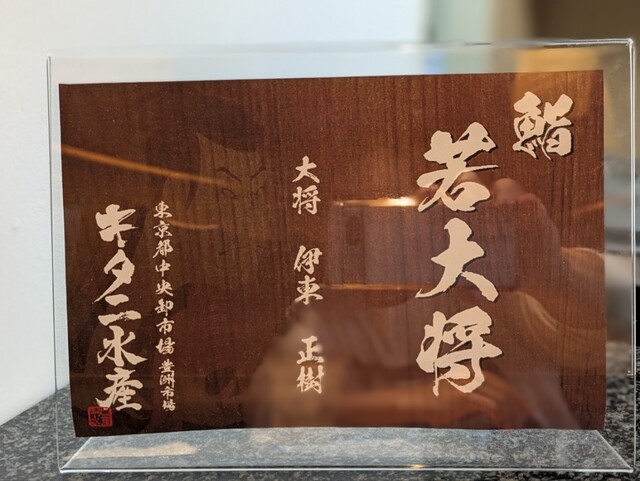 鮨
若大将
大将 伊東 正樹
東京都中央卸市場 豊洲市場
キタニ水産